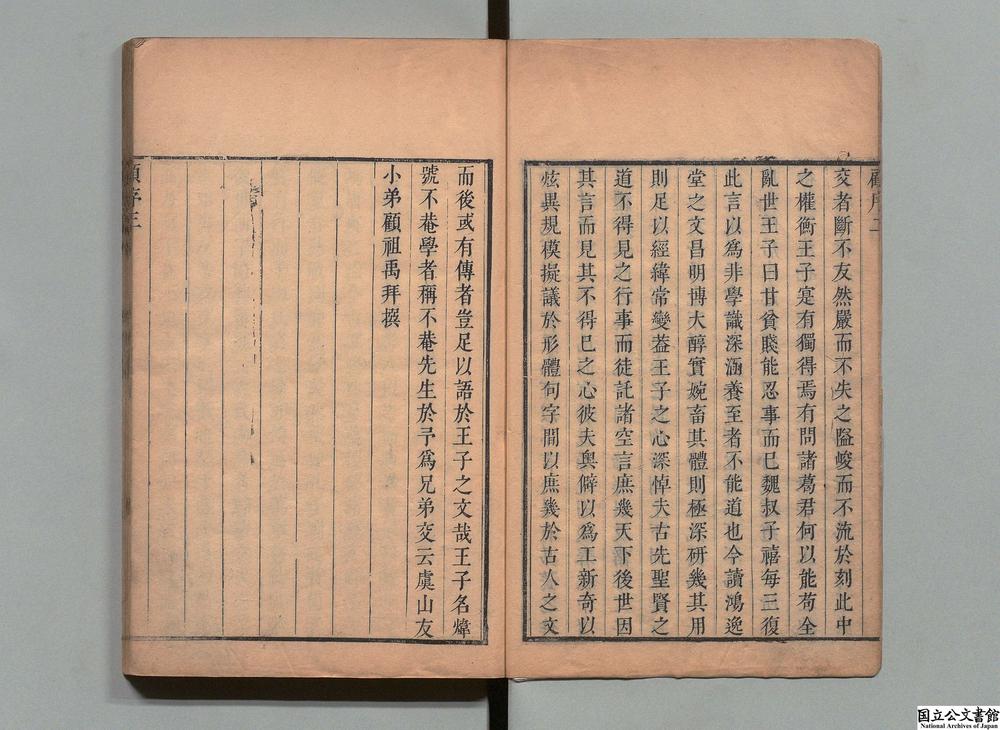 顧序二
交者斷不友然嚴而不失之隘峻而不流於刻此中
之權衡王子寔有獨得焉有問諸葛君何以能苟全
亂世王子曰甘貧賤能忍事而已魏叔子禧每三復
此言以為非學識深涵養至者不能道也今讀鴻逸
堂之文昌明博大醇實婉畜其體則極深研幾其用
則足以經緯常變葢王子之心深悼夫古先聖賢之
道不得見之行事而徒託諸空言庶幾天下後世因
其言而見其不得已之心彼夫奥僻以為工新奇以
炫異規模擬議於形體句字間以庶幾於古人之文
而後或有傳者豈足以語於王子之文哉王子名煒
號不菴學者稱不菴先生於予為兄弟交云虞山友
小弟顧祖禹拜撰
顧序三
国立公文書館
National Archives of Japan